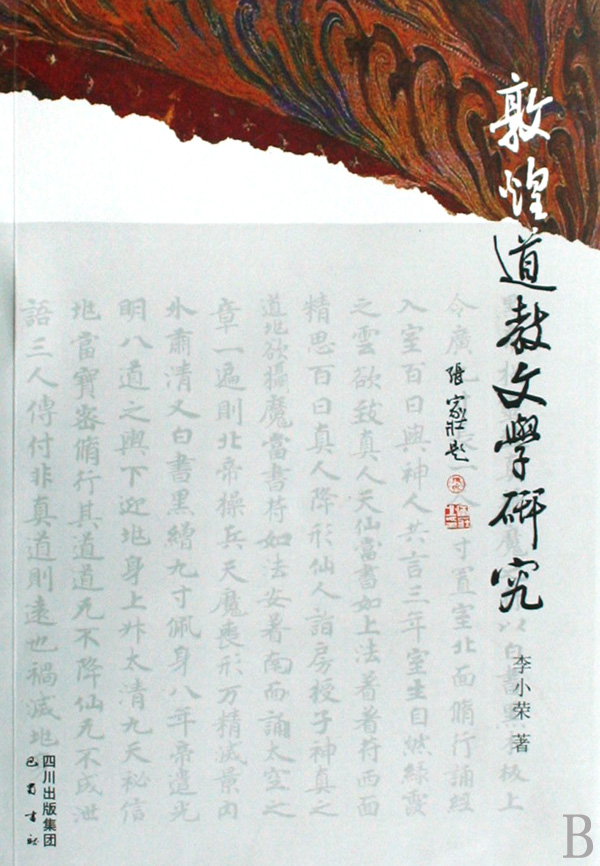 敦煌道教文學研究
張家壯題
李小荣 著
以白書黑板上
寸置室北面脩行誦經
入室百日與神人共言三年室生自然緑霞
之雲欲致真人天仙當書如上法着着符西面
精思百日真人降形仙人詣房授子神真之
道地欲攝魔當書符如法安著南面誦太空之
章一遍則北帝操兵天魔喪形万精滅景内
外肅清又白書黑繒九寸佩身八年帝遣光
明八道之輿下迎地身上升太清九天祕信
地當寶密脩行其道道无不降仙无不成泄
語三人傳付非真道則遠也禍滅地
四川出版集团
巴蜀书社
B